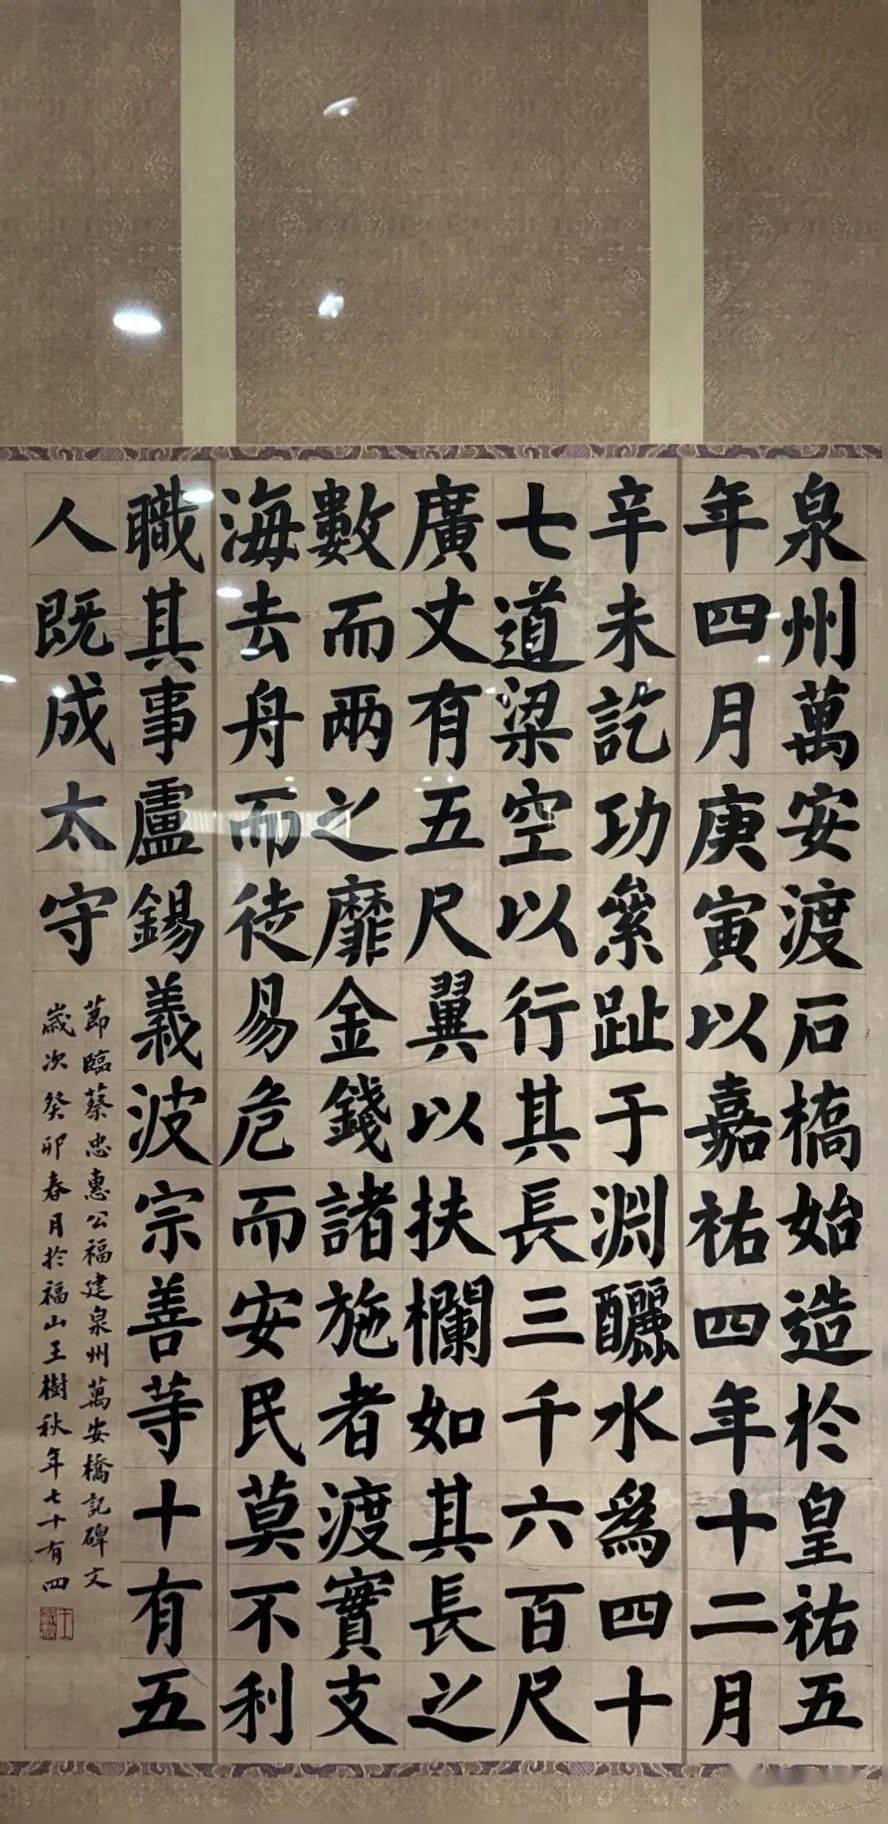 泉州萬安渡石橋始造於皇祐五
年四月庚寅以嘉祐四年十二月
辛未訖功絫趾于淵釃水為四十
七道梁空以行其長三千六百尺
廣丈有五尺翼以扶欄如其長之
數而兩之靡金錢諸施者渡實支
海去舟而徒易危而安民莫不利
職其事盧錫義波宗善等十有五
人既成太守
節臨蔡忠惠公福建泉州萬安橋記碑文
歲次癸卯春月於福山王樹秋年七十有四